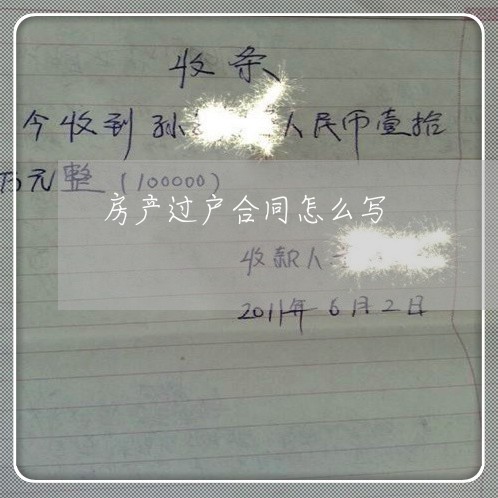 收条
今收到孙 人民币壹拾
万元整(100000)
房产过户合同怎么写
收款人
2011年6月2日